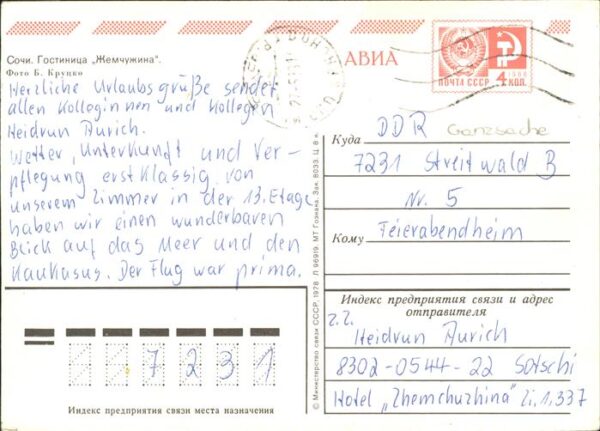 Сочи. Гостиница „Жемчужина".
Фото Б. Круцко
Herzliche Urlaubsgrüße sendet
allen Kolleginnen und Kollegen
Heidrun Aurich.
Wetter, Unterkunft und Ver-
pflegung erstklassig. Von
unserem Zimmer in der 13. Etage
haben wir einen wunderbaren
Blick auf das Meer und den
Kaukasus. Der Flug war prima.
7231
Индекс предприятия связи места назначения
© Министерство связи СССР, 1978 Л 96919. МТ Гознака. Зак. 8033. Ц. 8 к.
АВИА
ПОЧТА СССР 4 КОП.
Куда
DDR Ganzsache
7231 Streitwald B
Nr. 5
Кому
Feierabendheim
Индекс предприятия связи и адрес
отправителя
z.Z.
Heidrun Aurich
8302-0544-22 Sotschi
Hotel „Zhemchuzhina" Zi. 1.337